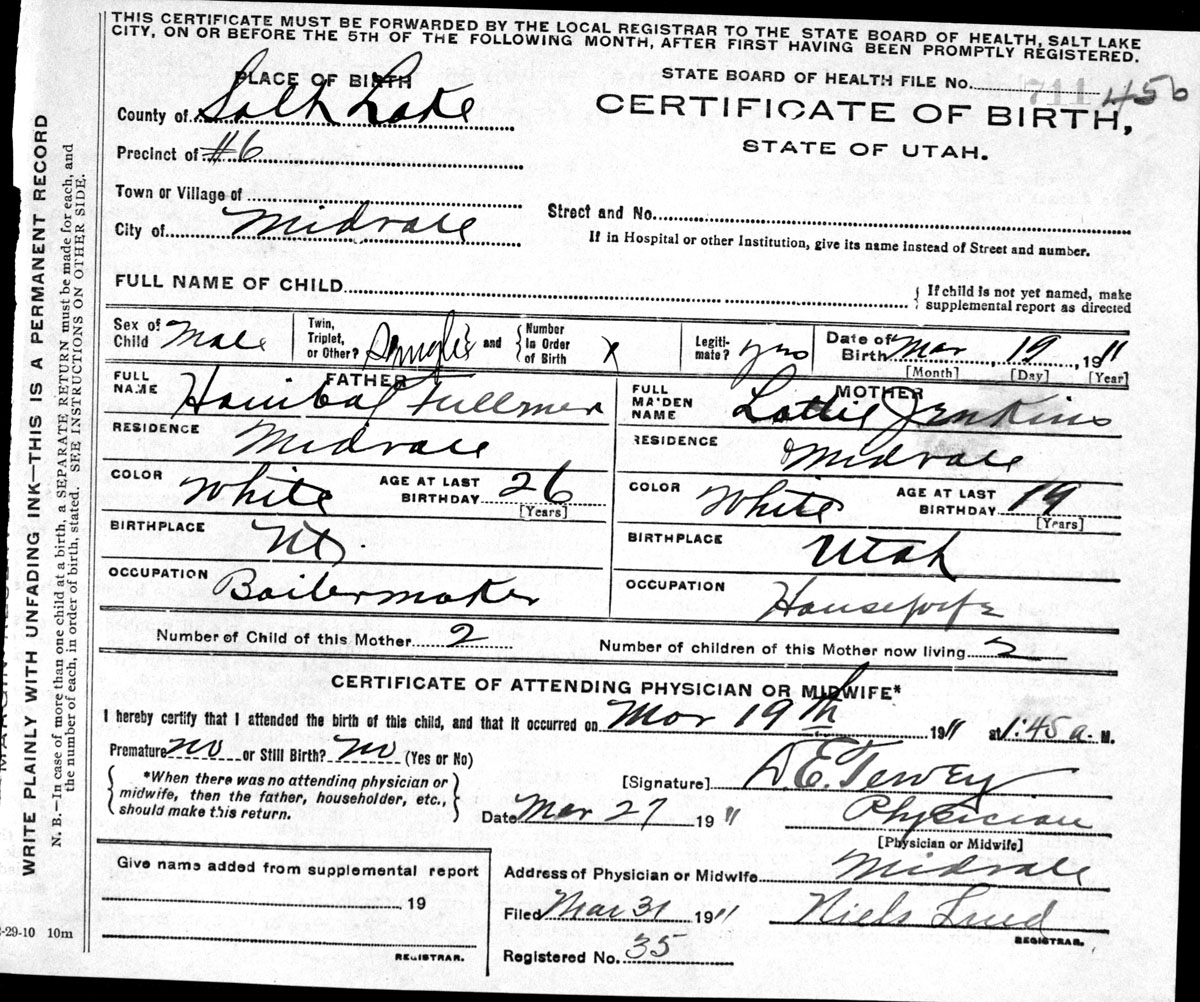 THIS CERTIFICATE MUST BE FORWARDED BY THE LOCAL REGISTRAR TO THE STATE BOARD OF HEALTH, SALT LAKE
CITY, ON OR BEFORE THE 5TH OF THE FOLLOWING MONTH, AFTER FIRST HAVING BEEN PROMPTLY REGISTERED.
PLACE OF BIRTH
STATE BOARD OF HEALTH FILE No. 711 456
County of Salt Lake
CERTIFICATE OF BIRTH,
STATE OF UTAH.
Precinct of #6
Town or Village of
Street and No.
City of Midvale
If in Hospital or other Institution, give its name instead of Street and number.
FULL NAME OF CHILD
{ If child is not yet named, make
supplemental report as directed
Sex of Child Male
Twin, Triplet, or Other? and { Number In Order of Birth
Legiti-mate? yes
Date of Birth Mar 19, 1911
[Month] [Day] [Year]
FATHER
FULL NAME Hanibal Fullmer
MOTHER
FULL MAIDEN NAME Lottie Jenkins
RESIDENCE Midvale
RESIDENCE Midvale
COLOR White AGE AT LAST BIRTHDAY 26 [Years]
COLOR White AGE AT LAST BIRTHDAY 19 [Years]
BIRTHPLACE
BIRTHPLACE Utah
OCCUPATION Boilermaker
OCCUPATION Housewife
Number of Child of this Mother 2
Number of children of this Mother now living 2
CERTIFICATE OF ATTENDING PHYSICIAN OR MIDWIFE*
I hereby certify that I attended the birth of this child, and that it occurred on Mar 19th 1911 at 1:45 a. M.
Premature no or Still Birth? no (Yes or No)
{ *When there was no attending physician or
midwife, then the father, householder, etc.,
should make this return. }
[Signature]
Date Mar 27 19 11
Physician
[Physician or Midwife]
Give name added from supplemental report
19
REGISTRAR.
Address of Physician or Midwife Midvale
Filed Mar 31 1911 Niels Lind
REGISTRAR.
Registered No. 35
-29-10 10m
WRITE PLAINLY WITH UNFADING INK—THIS IS A PERMANENT RECORD
N. B.—In case of more than one child at a birth, a SEPARATE RETURN must be made for each, and
the number of each, in order of birth, stated. SEE INSTRUCTIONS ON OTHER SIDE.